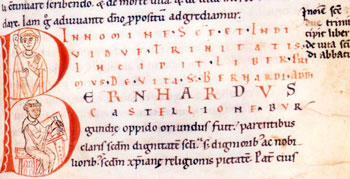 scribendo. de morte
dare. Iam g° adiuuante dño ꝓpositū adgrediamur.
IN NOMINE SCE ET INDI
VIDVE TRINITATIS
INCIPIT LIBER PRI
MVS DE VITA S BERNHARDI
BERNHARDUS
CASTELLIONE BVR
gundię oppido oriundus fuit; parentibus
claris scd̄m dignitatē scl̄i. sꝫ dignioribꝰ ac nobi
lioribꝰ scd̄m xp̄ianę religionis pietatē. Pat᷑ eius
noīe sc̄e
trini
cipit liber
de uita
di abbati